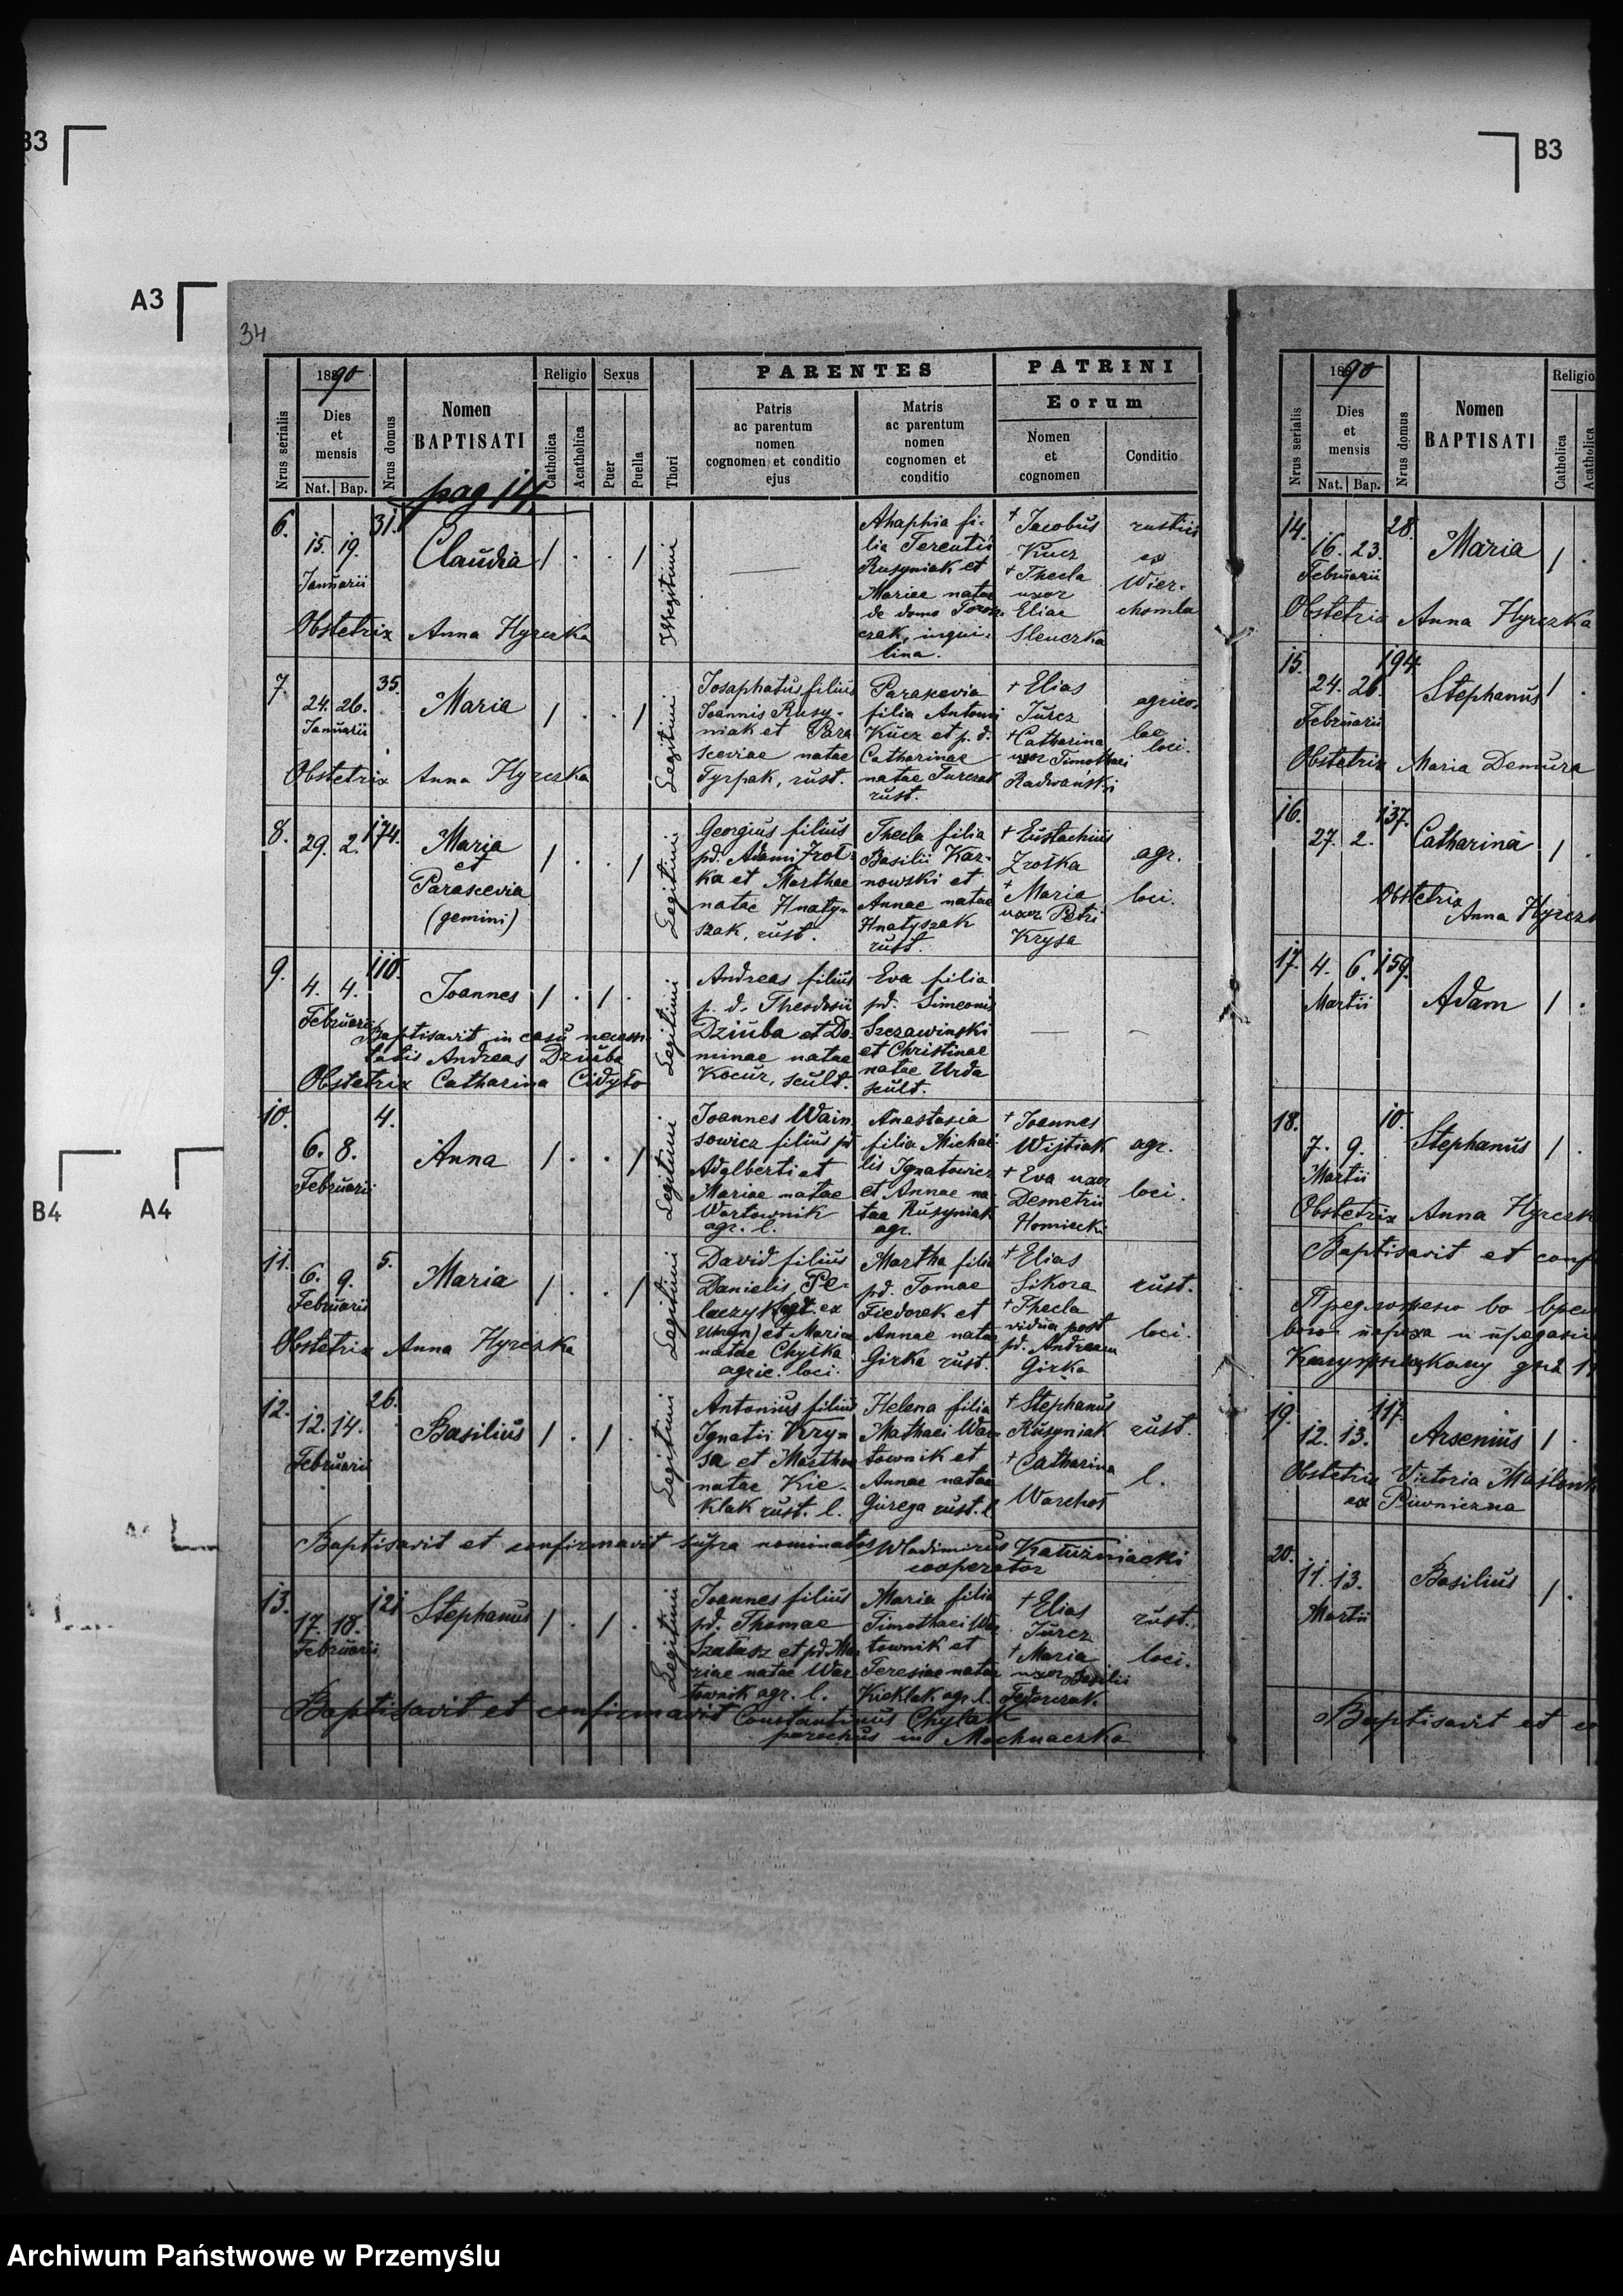 B3
B3
A3
34
1890
Dies
et
mensis
Nat. Bap.
Nrus serialis
Nrus domus
Nomen
BAPTISATI
pag 14
Religio
Catholica
Acatholica
Sexus
Puer
Puella
Thori
PARENTES
Patris
ac parentum
nomen
cognomen et conditio
ejus
Matris
ac parentum
nomen
cognomen et
conditio
PATRINI
Eorum
Nomen
et
cognomen
Conditio
6.
15. 19.
Januarii
31.
Claudia
1 . . 1
Illegitimi
—
Ahaphia fi-
lia Terentii
Rusyniak et
Mariae natae
de domo
czak, inqui-
lina.
+ Jacobus
Kucz
+ Thecla
uxor
Eliae
Slenczka
rustici
ex
Wier-
chomla
Obstetrix Anna Hyrczka
7.
24. 26.
Januarii
35.
Maria
1 . . 1
Legitimi
Josaphatus filius
Joannis Rusy-
niak et Para
sceviae natae
Tyrpak, rust.
Parascevia
filia Antonii
Kucz et p. d.
Catharinae
natae Turczak
rust.
+ Elias
Jurcz
+ Catharina
uxor Timothaei
Radwański
agrico-
lae
loci.
Obstetrix Anna Hyrczka
8.
29. 2.
174.
Maria
et
Parascevia
(gemini)
1 . . 1
Legitimi
Georgius filius
pd. Adami Zroł-
ka et Marthae
natae Hnaty-
szak, rust.
Thecla filia
Basilii Kar-
nowski et
Annae natae
Hnatyszak
rust.
+ Eustachius
Zrołka
+ Maria
uxor Petri
Krysa
agr.
loci.
9.
4. 4.
Februarii
110.
Joannes
1 . 1 .
Legitimi
Andreas filius
p. d. Theodosii
Dziuba et Do-
minae natae
Kocur, scult.
Eva filia
pd. Simeonis
Szczawinski
et Christinae
natae Urda
scult.
—
—
Baptisavit in casu necessi-
tatis Andreas Dziuba
Obstetrix Catharina Cidyło
10.
6. 8.
Februarii
4.
Anna
1 . . 1
Legitimi
Joannes Wain
sowicz filius pd
Adalberti et
Mariae natae
Wartownik
agr. l.
Anastasia
filia Michae
lis Ignatowicz
et Annae na-
tae Rusyniak
agr.
+ Joannes
Wijtiak
+ Eva uxor
Demetrii
Homiecki
agr.
loci.
11.
6. 9.
Februarii
5.
Maria
1 . . 1
Legitimi
David filius
Danielis Pe-
laczyk
et Mariae
natae Chylka
agric. loci.
Martha filia
pd. Tomae
Fiedorek et
Annae natae
Girka rust.
+ Elias
Sikora
+ Thecla
vidua post
pd. Andream
Girka
rust.
loci.
Obstetrix Anna Hyrczka
12.
12. 14.
Februarii
26.
Basilius
1 . 1 .
Legitimi
Antonius filius
Ignatii Kry-
sa et Marthae
natae Kie-
klak rust. l.
Helena filia
Mathaei War-
townik et
Annae natae
Gurega rust. l
+ Stephanus
Rusyniak
+ Catharina
Warchoł
rust.
l.
Baptisavit et confirmavit supra nominatos Wladimirus Kałużniacki
cooperator
13.
17. 18.
Februarii
121
Stephanus
1 . 1 .
Legitimi
Joannes filius
pd. Thomae
Szałasz et pd. Ma
riae natae War-
townik agr. l.
Maria filia
Timothaei War
townik et
Teresiae natae
Kieklak agr. l.
+ Elias
Jurcz
+ Maria
uxor Basilii
Fedorczak
rust.
loci.
Baptisavit et confirmavit Constantinus Chylak
parochus in Mochnaczka
1890
Dies
et
mensis
Nat. Bap.
Nrus serialis
Nrus domus
Nomen
BAPTISATI
Religio
Catholica
Acatholica
14.
16. 23.
Februarii
28.
Maria
1 .
Obstetrix Anna Hyrczka
15.
24. 26.
Februarii
194.
Stephanus
1 .
Obstetrix Maria Demura
16.
27. 2.
137.
Catharina
1 .
Obstetrix
Anna
17.
4. 6.
Martii
159.
Adam
1 .
18.
7. 9.
Martii
10.
Stephanus
1 .
Obstetrix Anna
Baptisavit et
19.
12. 13.
117.
Arsenius
1 .
Obstetrix Victoria
ex Piwniczna
20.
11. 13.
Martii
Basilius
1 .
Baptisavit et
B4
A4
Archiwum Państwowe w Przemyślu